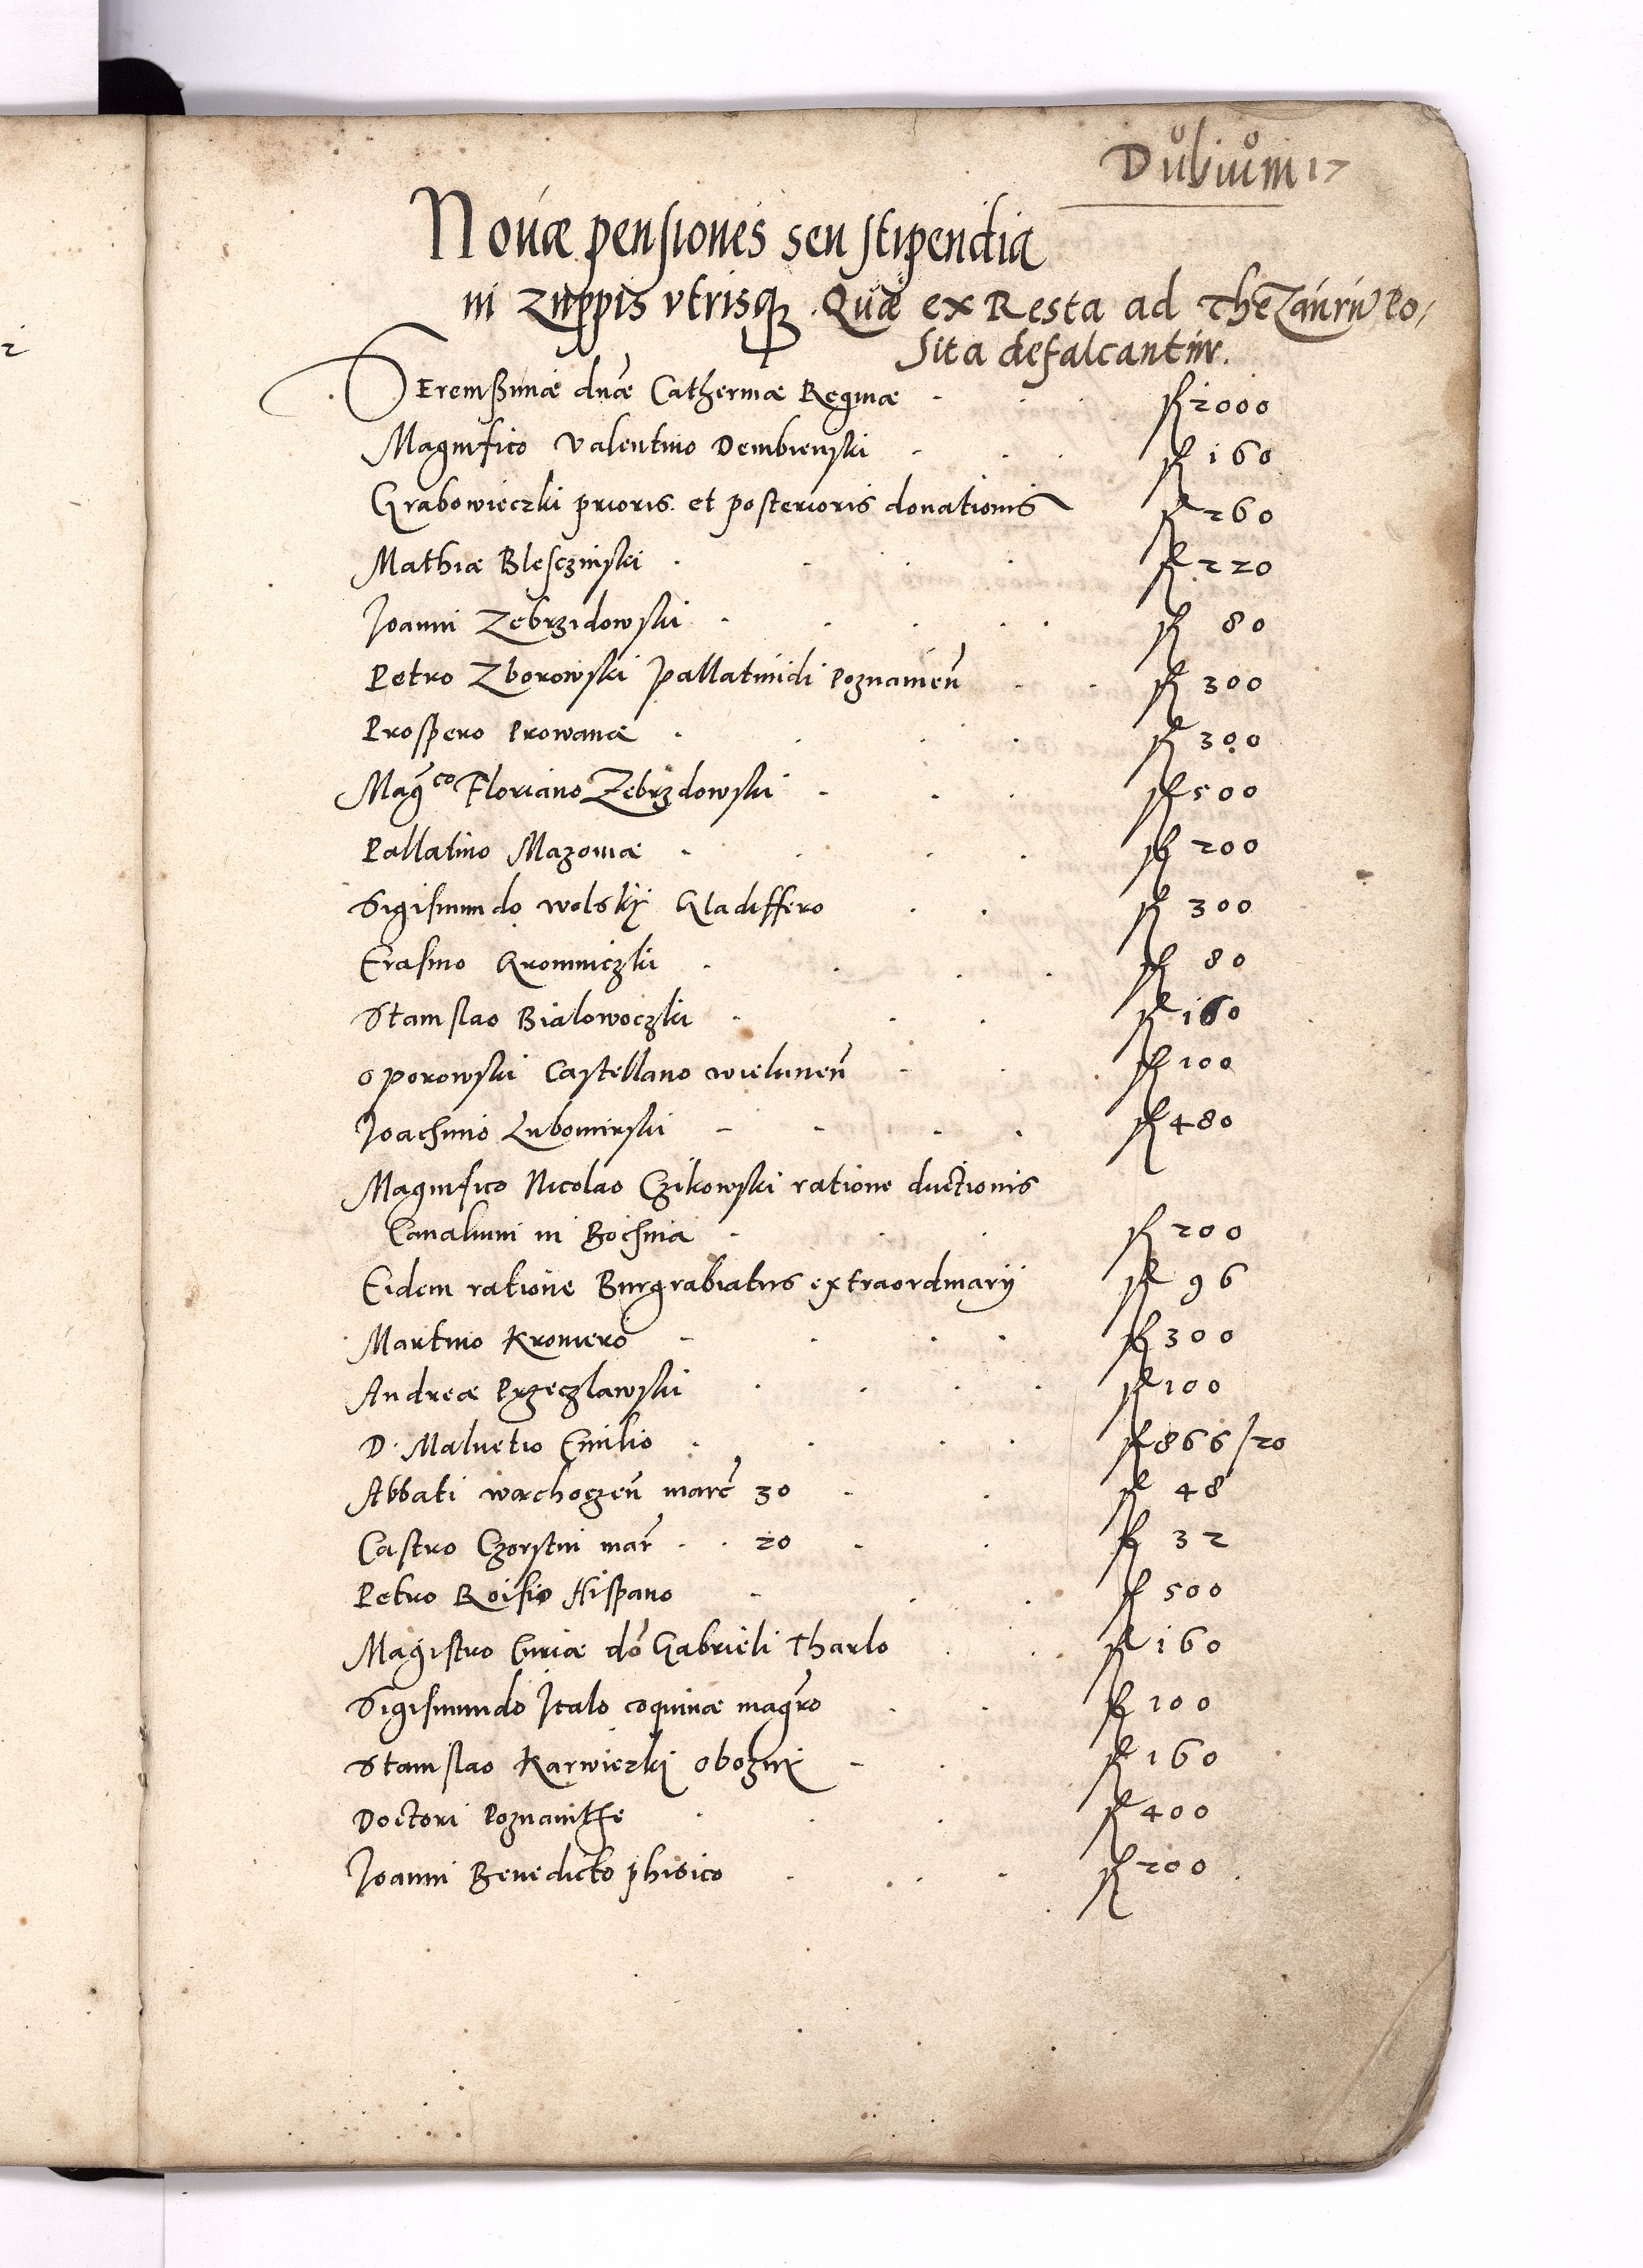 Dubium 17
Novæ pensiones seu stipendia
in Zuppis vtrisq. Quæ ex Resta ad Thezaurũ Po,
sita defalcantur.
Serenissimæ dnæ Catherinæ Reginæ fl 2000
Magnifico Valentino Dembienski fl 160
Grabowieczki prioris et posterioris donationis fl 260
Mathiæ Blesczinski fl 220
Joanni Zebrzidowski fl 80
Petro Zborowski Pallatinidi Poznanien̄ fl 300
Prospero Prowanæ fl 300
Mag^co Floriano Zebrzdowski fl 500
Pallatino Mazouiæ fl 200
Sigismundo Wolskÿ Gladiffero fl 300
Erasmo Kromniczki fl 80
Stanislao Bialowoczki fl 160
Oporowski Castellano wielunen̄ fl 100
Joachimo Lubomirski fl 480
Magnifico Nicolao Czikowski ratione ductionis
Canalium in Bochnia fl 200
Eidem ratione Burgrabiatus extraordinarÿ fl 96
Martino Kromero fl 300
Andreæ Przeczlawski fl 100
D. Maluetio Emilio fl 866/20
Abbati wachoczen̄ marc̄ 30 fl 48
Castro Czorstin mar̄ 20 fl 32
Petro Roisio Hispano fl 500
Magistro Curiæ dō Gabrieli Tharlo fl 160
Sigismundo Italo coquinæ magr̄o fl 100
Stanislao Karwiczkÿ obozny fl 160
Doctori Poznanithe fl 400
Joanni Benedicto phisico fl 200
2